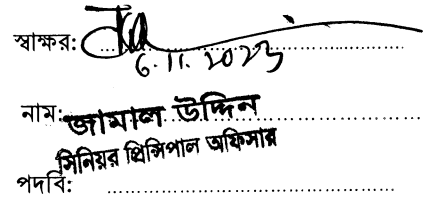 স্বাক্ষর:
6.11.2023
নাম: জামাল উদ্দিন
সিনিয়র প্রিন্সিপাল অফিসার
পদবি: